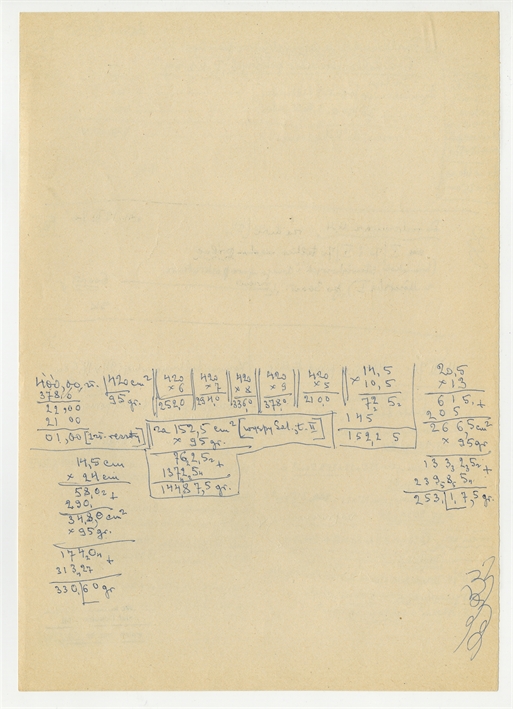 400,00 zł. | 420 cm²
378,0 | 95 gr.
22,00
21 00
01,00 [zł. reszty]
420
× 6
2520
420
× 7
2940
420
× 8
3360
420
× 9
3780
420
× 5
2100
14,5
× 10,5
72 5
145
152,2 5
20,5
× 13
61 5 +
20 5
26 6,5 cm²
× 95 gr.
1 3 3 2,5 +
2 3 9 8 5
253,1 7,5 gr.
za 152,5 cm²
× 95 gr.
76 2,5 +
1372,5
1448 7,5 gr.
14,5 cm
× 24 cm
58,0 +
290,
348,0 cm²
× 95 gr.
174,0 +
313,2
330,60 gr